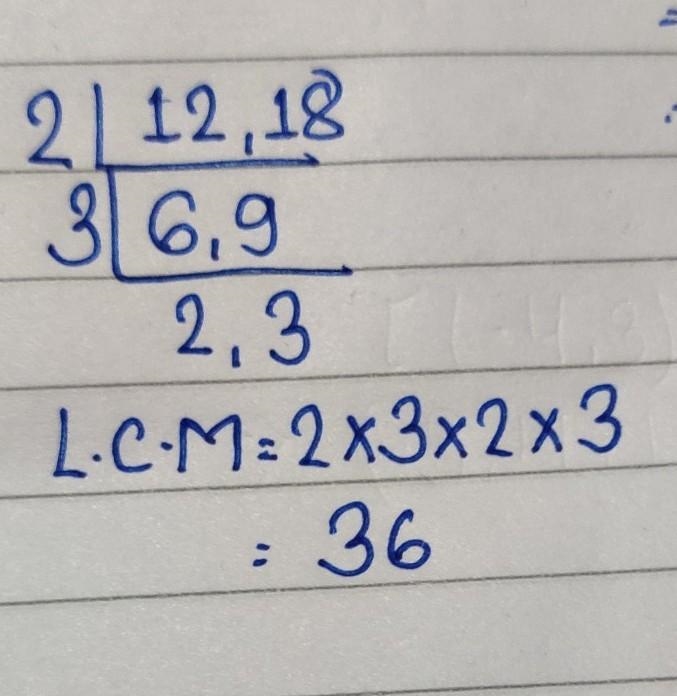 2 | 12,18
3 | 6,9
2,3
L.C.M = 2×3×2×3
= 36